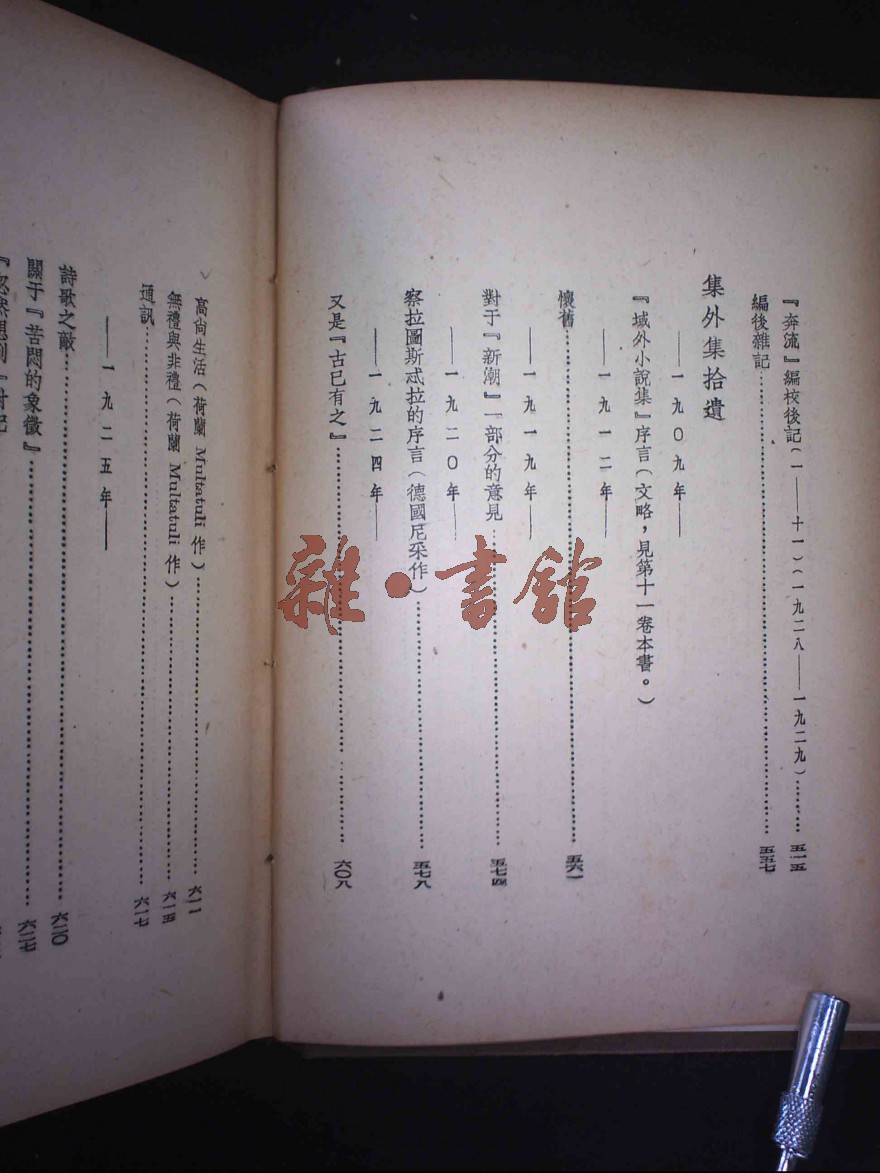 『奔流』編校後記(一——十一)(一九二八——一九二九)………五一五
編後雜記………五五七
集外集拾遺
——一九〇九年——
『域外小說集』序言(文略,見第十一卷本書。)
——一九一二年——
懷舊………五六一
——一九一九年——
對于『新潮』一部分的意見………五七四
——一九二〇年——
察拉圖斯忒拉的序言(德國尼采作)………五七八
——一九二四年——
又是『古已有之』………六〇八
高尙生活(荷蘭 Multatuli 作)………六一一
無禮與非禮(荷蘭 Multatuli 作)………六一五
通訊………六一七
——一九二五年——
詩歌之敵………六二〇
關于『苦悶的象徵』………六二七
雜·書館